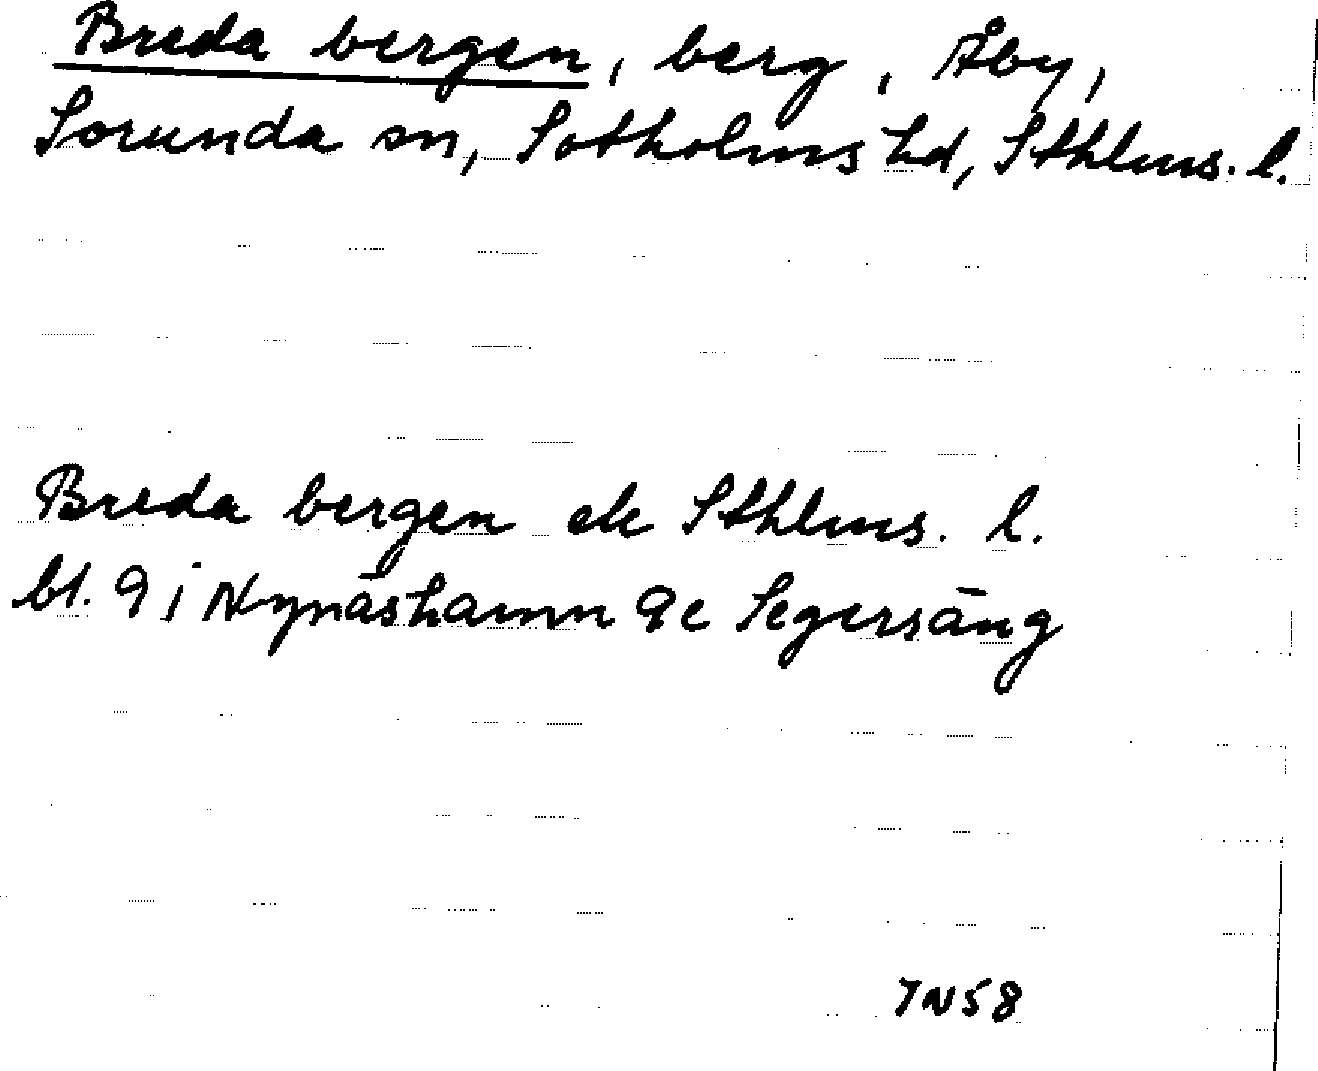 Breda bergen, berg, Åby,
Sorunda sn, Sotholms hd, Sthlms. l.
Breda bergen ek Sthlms. l.
bl. 9 i Nynäshamn 9c Segersäng
TN58